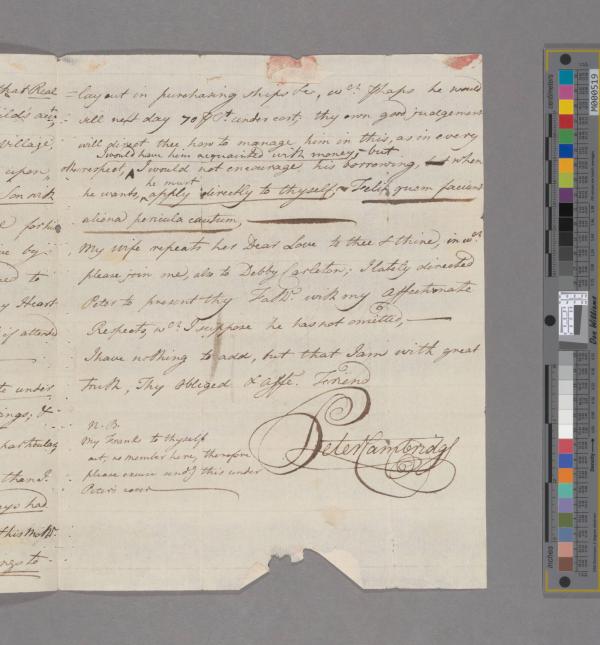 that Real
village,
upon,
Son with
by
to
Heart
if attend
under
ings; &
particulars
than I
had
to
= lay out in purchasing ships &c, wch. phaps he would
sell next day 70 P Ct. under cost; thy own good judgement
will direct thee how to manage him in this, as in every
I would have him acquainted with money; but
other respect, I would not encourage his borrowing, when
he must
he wants, apply directly to thyself; Felix quem faciunt
aliena pericula cautum,
My wife repeats her Dear Love to thee & thine, in wch.
please join me, also to Debby Carleton; I lately directed
Peter to present thy Fathr. with my affectionate
Respects, wch. I suppose he has not omitted,
I have nothing to add, but that I am with great
truth, Thy obliged & affe. Friend
Peter Cambridge
N. B.
My Franks to thyself
art, no member here, therefore
please excuse sendg this under
Peter's cover
centimeters
inches
M000519
Don Williams